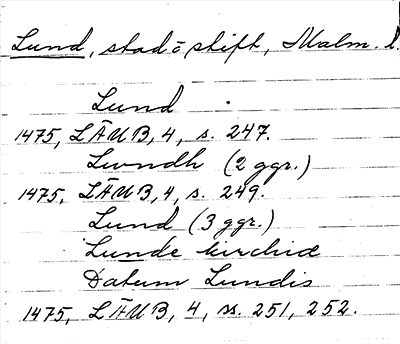 Lund, stad o stift, Malm. l.
Lund
1475, LÄUB, 4, s. 247.
Lwndh (2 ggr.)
1475, LÄUB, 4, s. 249.
Lund (3 ggr.)
Lunde kirchid
Datum Lundis
1475, LÄUB, 4, ss. 251, 252.